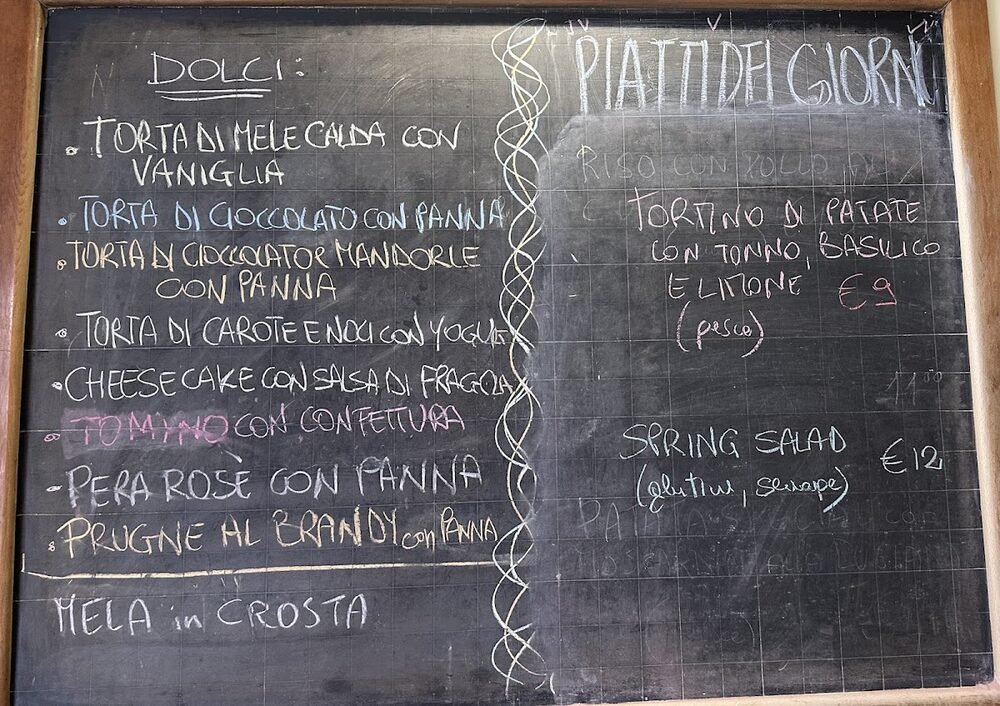 DOLCI:
TORTA DI MELE CALDA CON
VANIGLIA
TORTA DI CIOCCOLATO CON PANNA
TORTA DI CIOCCOLATO E MANDORLE
CON PANNA
TORTA DI CAROTE E NOCI CON YOGURT
CHEESECAKE CON SALSA DI FRAGOLA
TOMINO CON CONFETTURA
PERA ROSE CON PANNA
PRUGNE AL BRANDY con PANNA
MELA in CROSTA
PIATTI DEL GIORNO
RISO CON POLLO AL
TORTINO DI PATATE
CON TONNO, BASILICO
E LIMONE €9
(pesce)
11.00
SPRING SALAD €12
(glutine, senape)